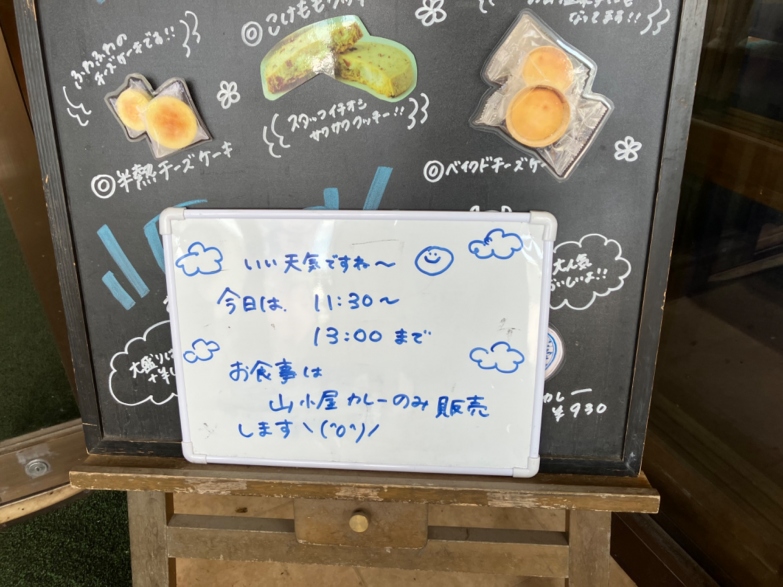 こけももクッキー
なってます!!
ふわふわの
チーズケーキです!!
スタッフイチオシ
サクサククッキー!!
◎半熟チーズケーキ
◎ベイクドチーズケー
いい天気ですね〜
今日は、11:30〜
13:00まで
お食事は
山小屋カレーのみ販売
します\(^o^)/
大人気
おいしいよ!!
大盛りは
カレー
¥930